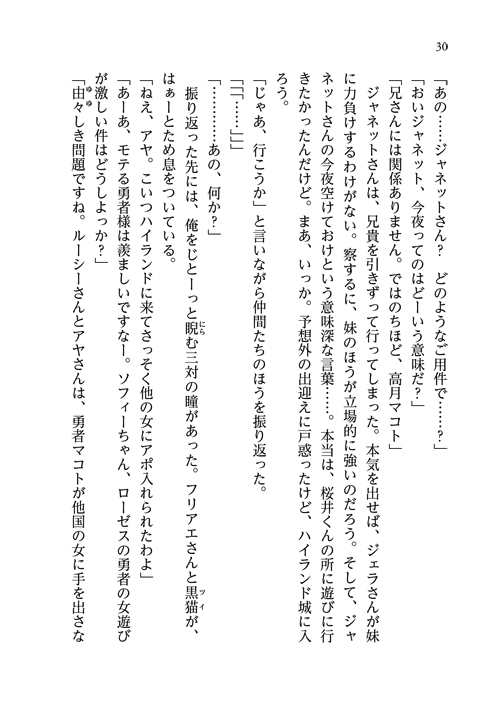 30
「あの……ジャネットさん？　どのようなご用件で……？」
「おいジャネット、今夜ってのはどーいう意味だ？」
「兄さんには関係ありません。ではのちほど、高月マコト」
　ジャネットさんは、兄貴を引きずって行ってしまった。本気を出せば、ジェラさんが妹
に力負けするわけがない。察するに、妹のほうが立場的に強いのだろう。そして、ジャ
ネットさんの今夜空けておけという意味深な言葉……。本当は、桜井くんの所に遊びに行
きたかったんだけど。まあ、いっか。予想外の出迎えに戸惑ったけど、ハイランド城に入
ろう。
「じゃあ、行こうか」と言いながら仲間たちのほうを振り返った。
「「「……」」」
「…………あの、何か？」
　振り返った先には、俺をじとーっと睨む三対の瞳があった。フリアエさんと黒猫が、
はぁーとため息をついている。
「ねえ、アヤ。こいつハイランドに来てさっそく他の女にアポ入れられたわよ」
「あーあ、モテる勇者様は羨ましいですなー。ソフィーちゃん、ローゼスの勇者の女遊び
が激しい件はどうしよっか？」
「由々しき問題ですね。ルーシーさんとアヤさんは、勇者マコトが他国の女に手を出さな